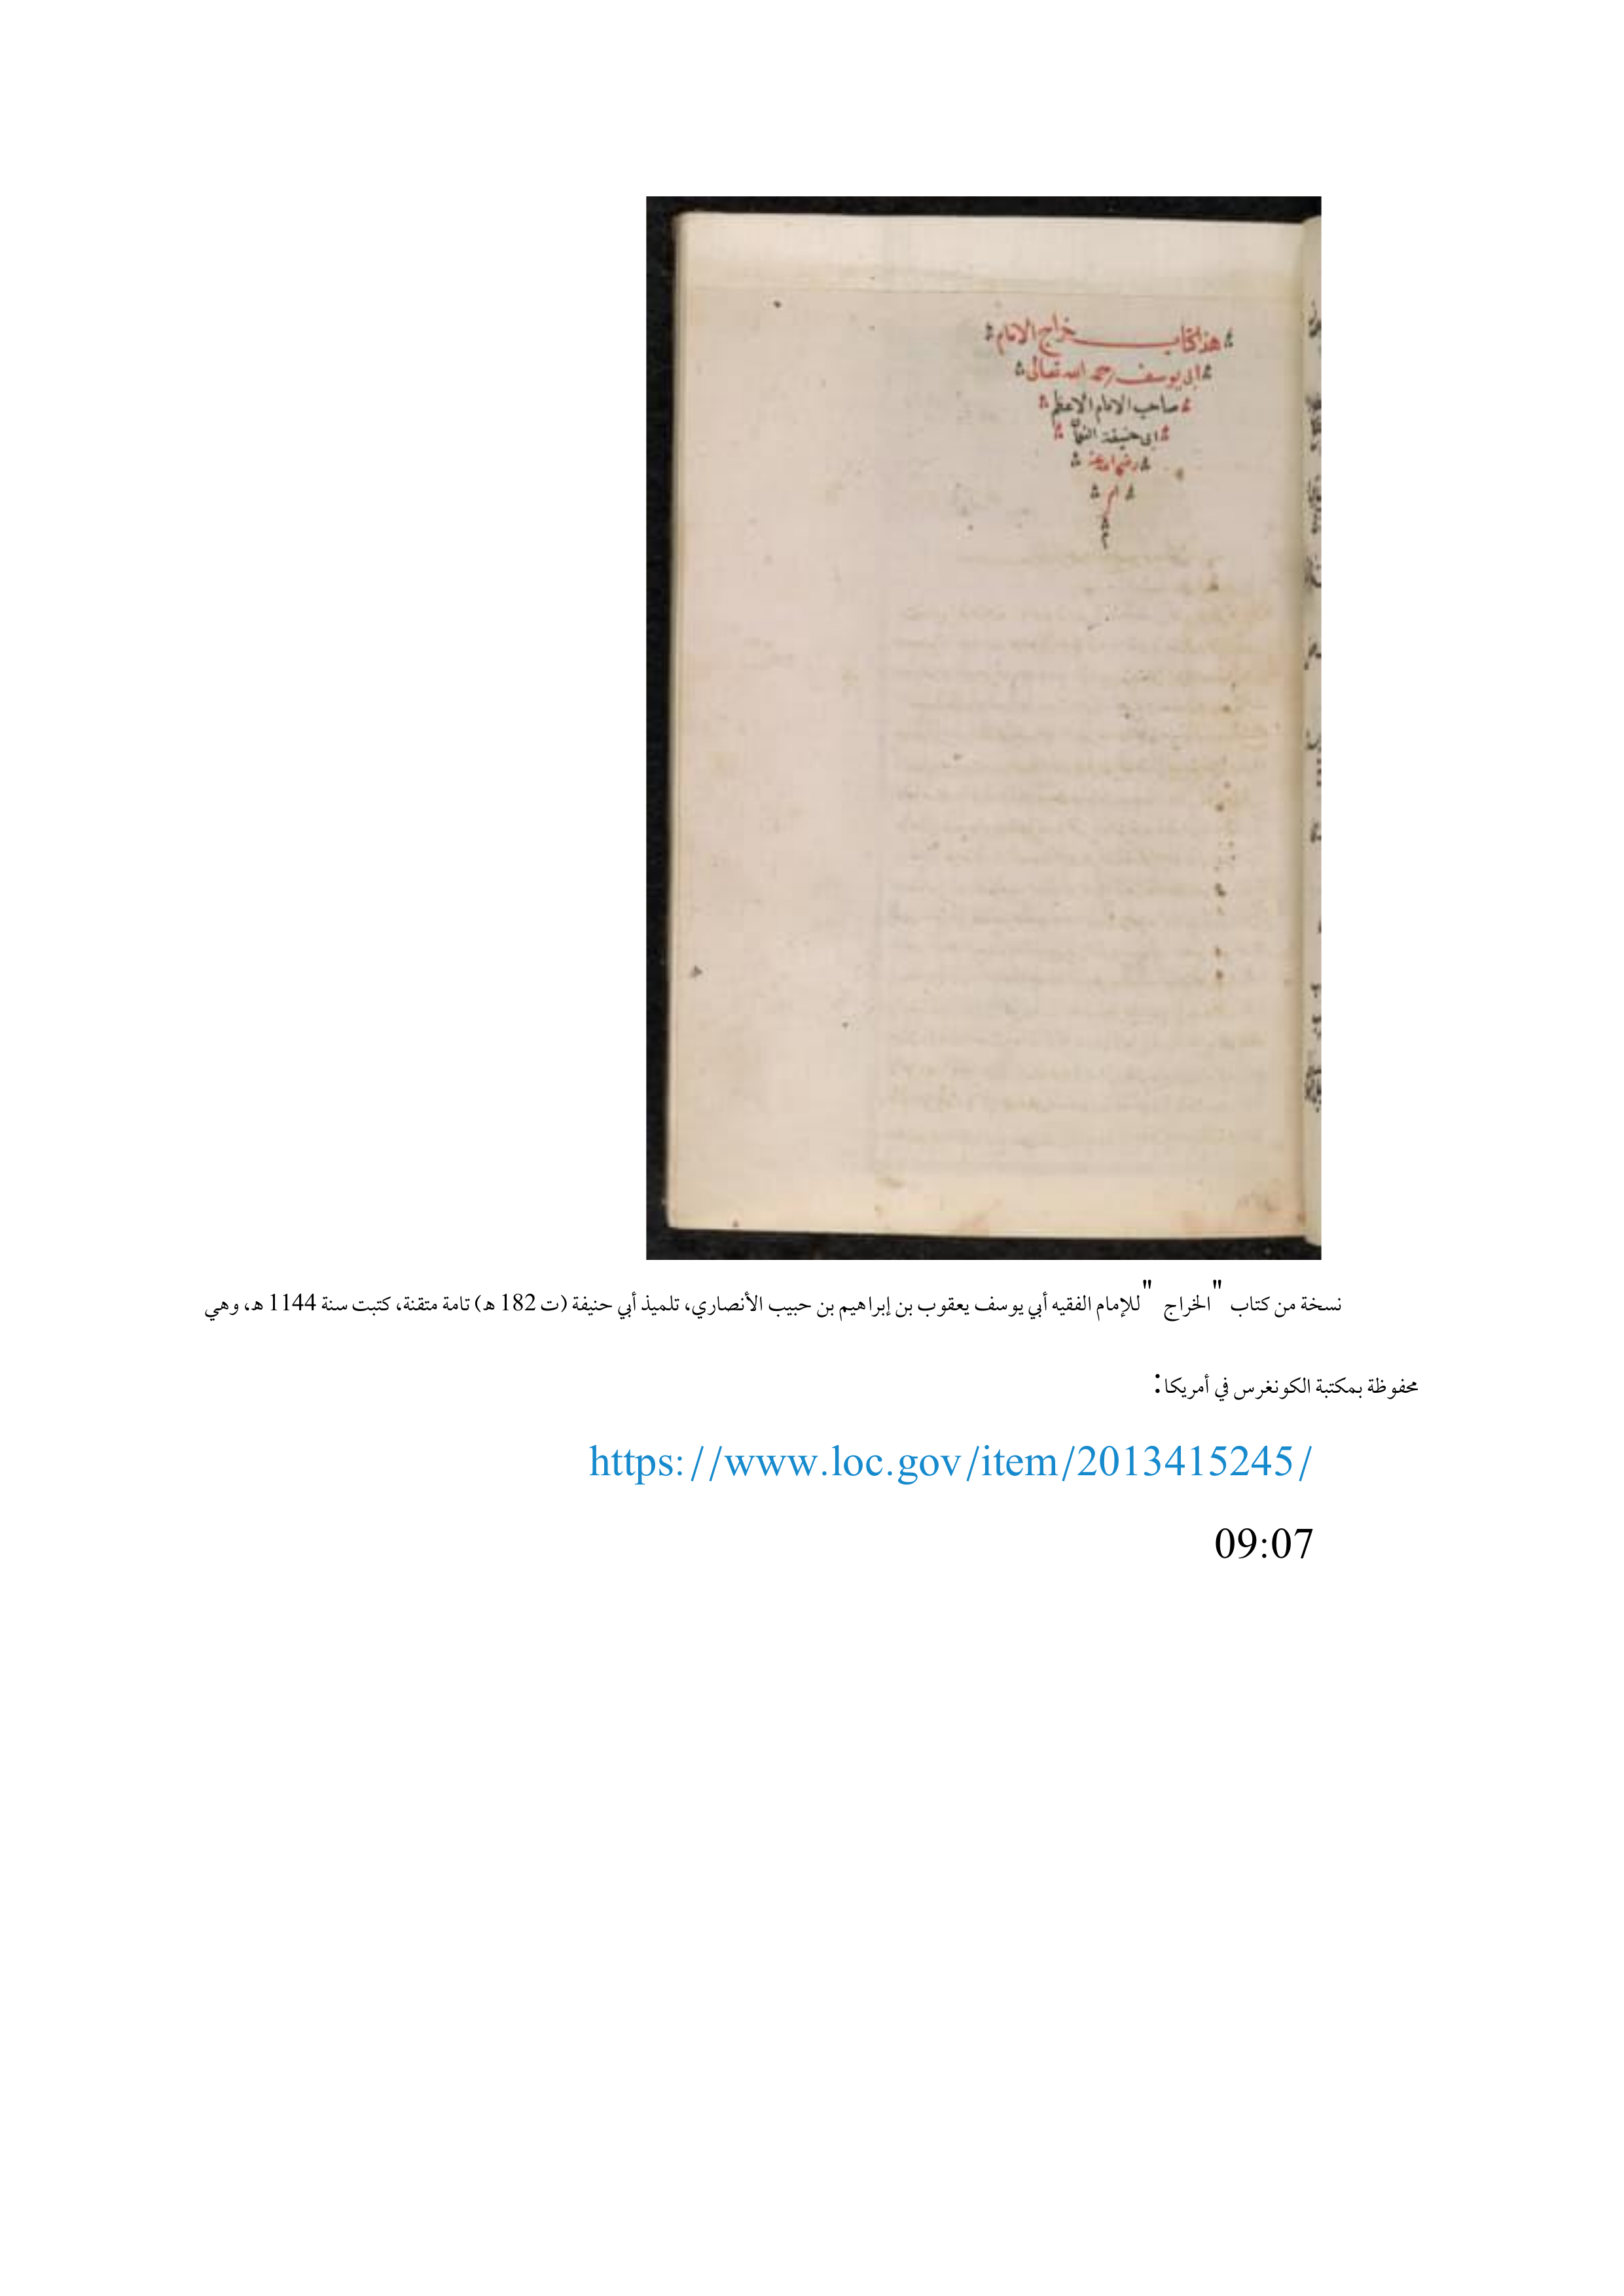 هذا كتاب خراج الامام
ابى يوسف رحمه الله تعالى
صاحب الامام الاعظم
ابى حنيفة النعمان
رضى الله عنه
نسخة من كتاب "الخراج" للإمام الفقيه أبي يوسف يعقوب بن إبراهيم بن حبيب الأنصاري، تلميذ أبي حنيفة (ت 182 هـ) تامة متقنة، كتبت سنة 1144 هـ، وهي
محفوظة بمكتبة الكونغرس في أمريكا:
https://www.loc.gov/item/2013415245/
09:07